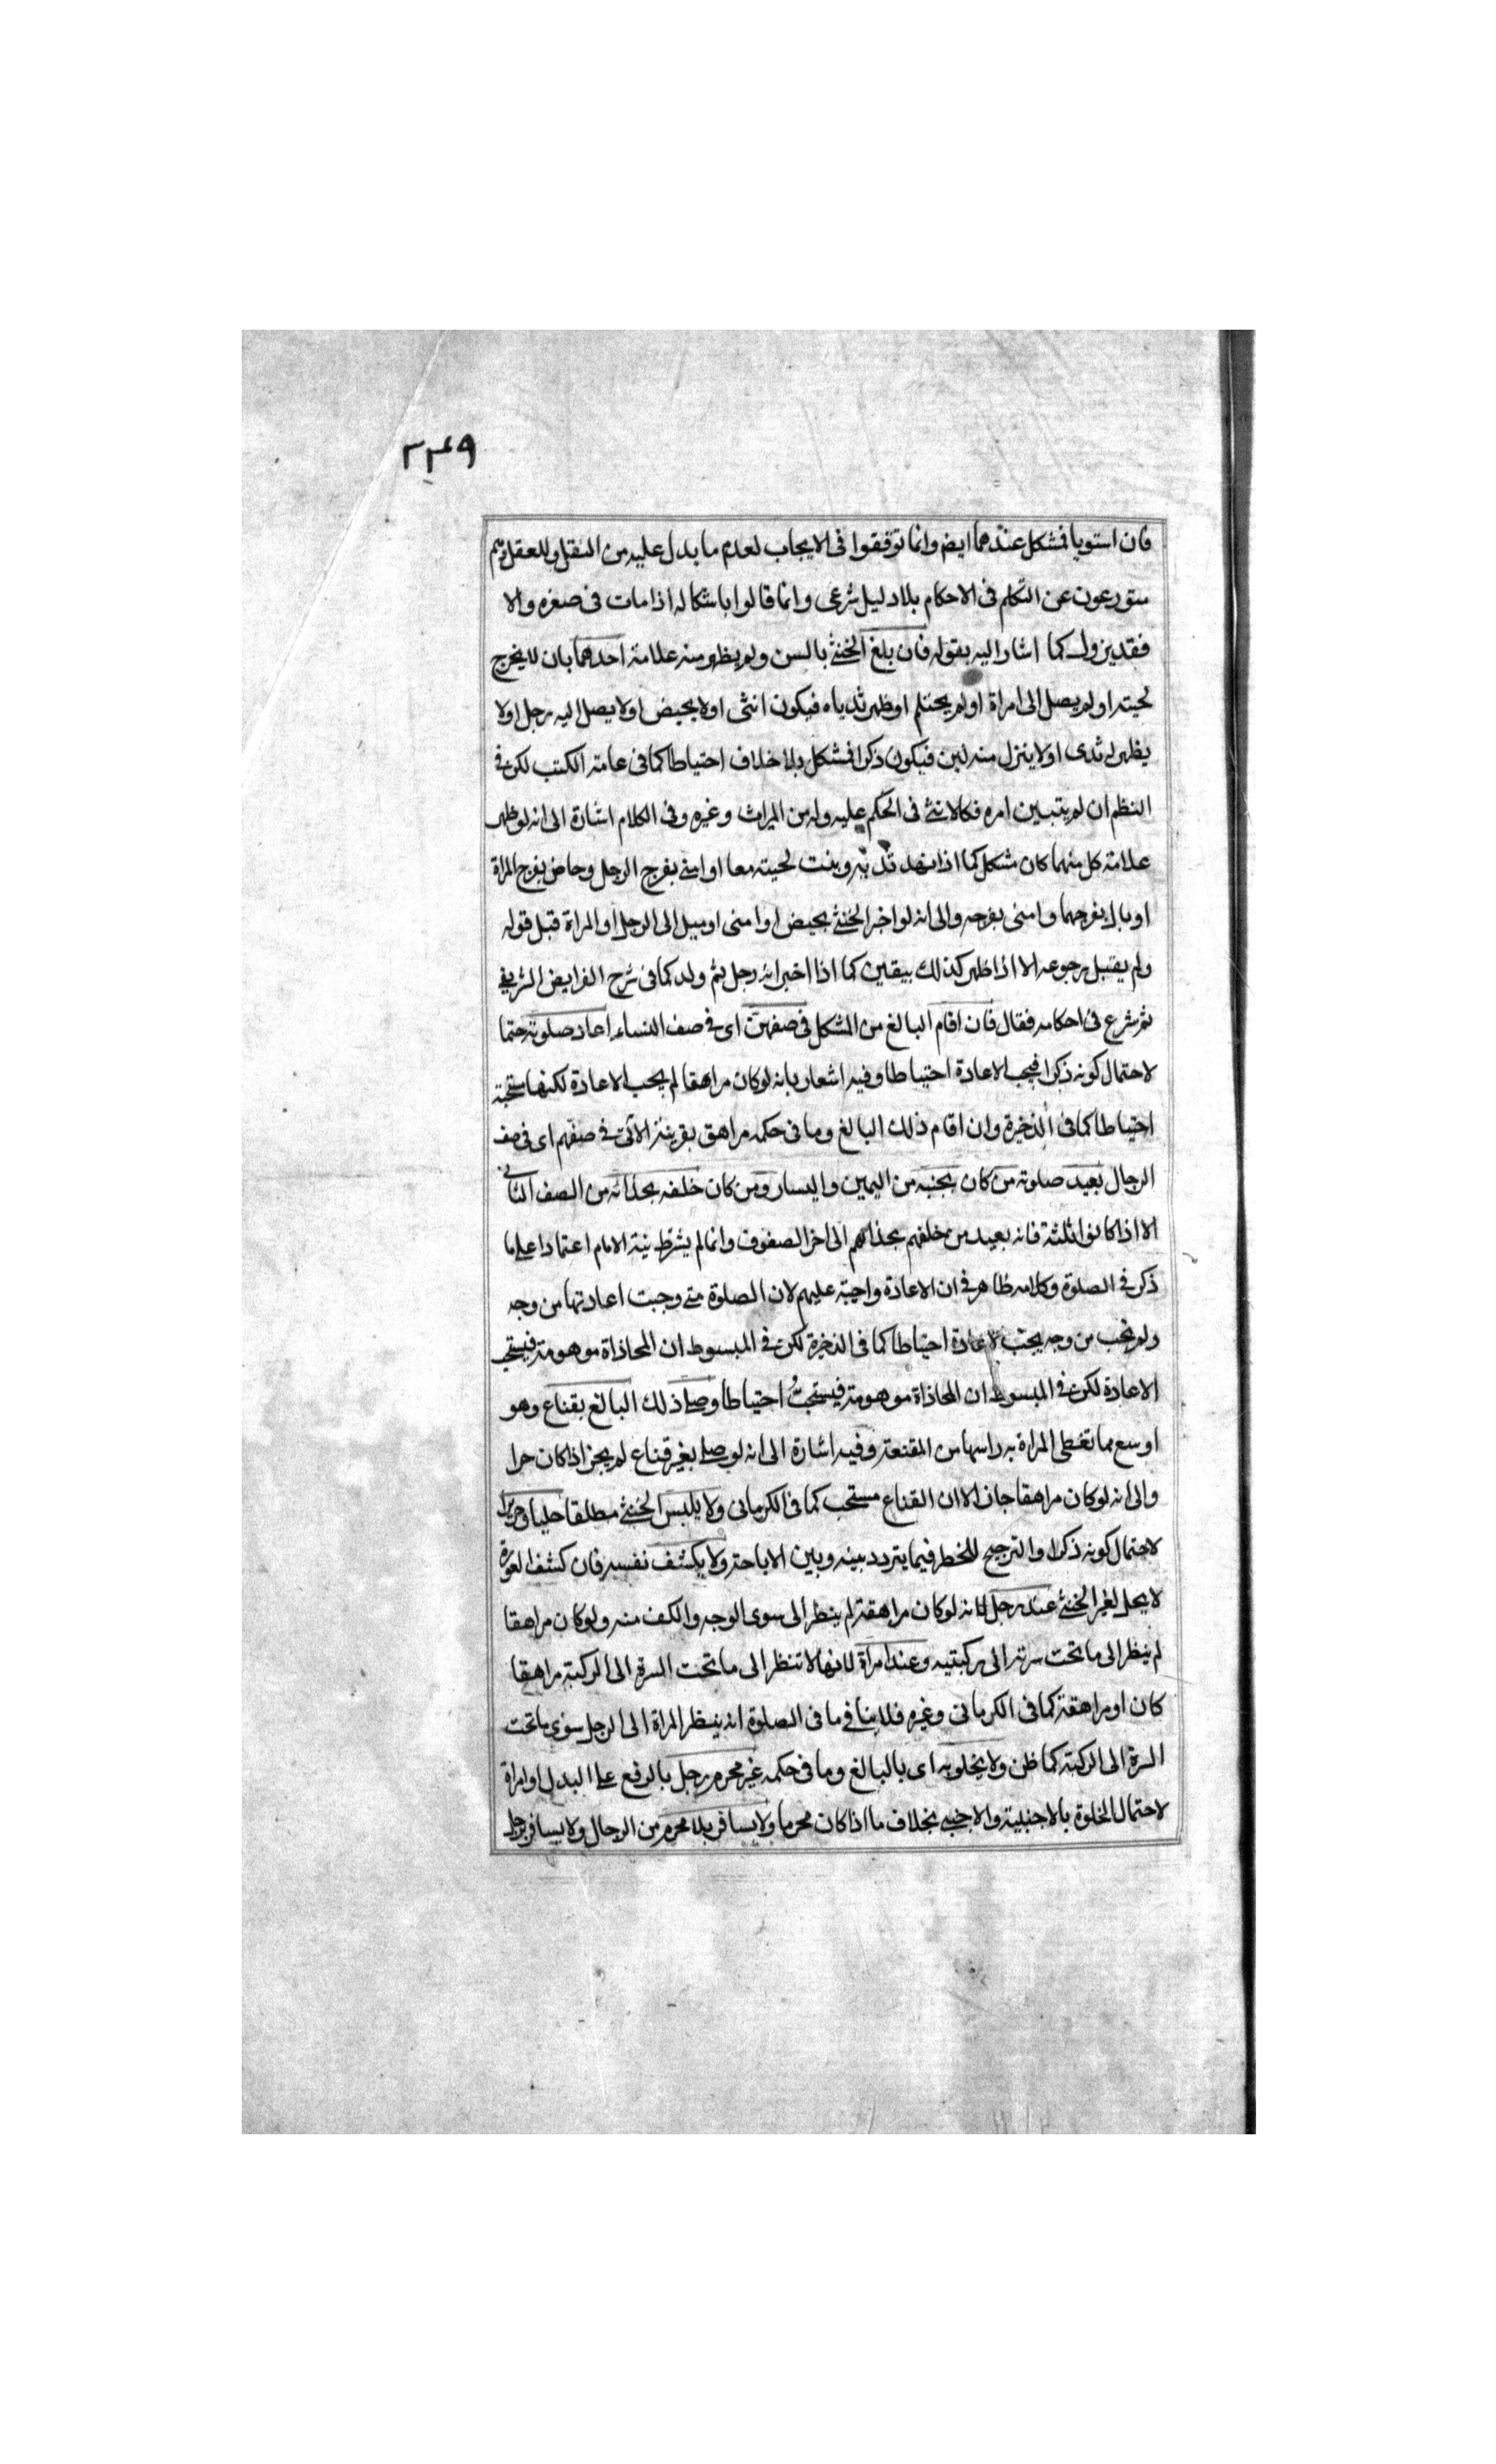 ٣٣٤٩
فان استويا فمشكل عندهما ايض وانما توقفوا فى الايجاب لعدم ما يدل عليه من النقل والعقل
متورعون عن التكلم فى الاحكام بلا دليل شرعى وانما قالوا باشكاله اذا مات فى صغره والا
فقد يزول كما اشار اليه بقوله فان بلغ الخنثى بالسن ولم يظهر منه علامة احدهما بان لا يخرج
لحيته او لم يصل الى امراة او لم يحتلم او ظهر ثدياه فيكون انثى او لا يحيض او لا يصل اليه رجل او لا
يظهر له ثدى او لا ينزل منه لبن فيكون ذكرا فمشكل بلا خلاف احتياطا كما فى عامة الكتب لكن فى
النظم ان لم يتبين امره فكالانثى فى الحكم عليه وله من الميراث وغيره وفى الكلام اشارة الى انه لو ظهر
علامة كل منهما كان مشكل كما اذا نهد ثديه ونبت لحيته معا او امنى بفرج الرجل وحاض بفرج المراة
او بال بفرجهما وامنى بفرجه والى انه لو اخبر الخنثى بحيض او امنى او ميل الى الرجل او المراة قبل قوله
ولم يقبل رجوعه الا اذا ظهر كذلك بيقين كما اذا اخبر انه رجل ثم ولد كما فى شرح الفرايض الشريفى
ثم شرع فى احكامه فقال فان اقام البالغ من المشكل فى صفهن اى فى صف النساء اعاد صلوته حتما
لاحتمال كونه ذكرا فيجب الاعادة احتياطا وفيه اشعار بانه لو كان مراهقا لم يجب الاعادة لكنها مستحبة
احتياطا كما فى الذخيرة وان اقام ذلك البالغ وما فى حكمه مراهق بقرينة الاتى فى صفهم اى فى صف
الرجال يعيد صلوته من كان بجنبه من اليمين واليسار ومن كان خلفه بحذائه من الصف الثانى
الا اذا كانوا ثلثة فانه يعيد من خلفهم بحذائهم الى اخر الصفوف وانما لم يشترط نية الامام اعتمادا على ما
ذكر فى الصلوة وكلامه ظاهر فى ان الاعادة واجبة عليهم لان الصلوة متى وجبت اعادتها من وجه
ولم تجب من وجه يجب الاعادة احتياطا كما فى الذخيرة لكن فى المبسوط ان المحاذاة موهومة فيستحب
الاعادة لكن فى المبسوط ان المحاذاة موهومة فيستحب احتياطا وصلى ذلك البالغ بقناع وهو
اوسع مما تغطى المراة به راسها من المقنعة وفيه اشارة الى انه لو صلى بغير قناع لم يجز اذا كان حرا
والى انه لو كان مراهقا جاز الا ان القناع مستحب كما فى الكرمانى ولا يلبس الخنثى مطلقا حليا وحريرا
لاحتمال كونه ذكرا والترجيح للحظر فيما يتردد بينه وبين الاباحة ولا يكشف نفسه فان كشف العورة
لا يحل لغير الخنثى عند رجل لانه لو كان مراهقة لم ينظر الى سوى الوجه والكف منه ولو كان مراهقا
لم ينظر الى ما تحت سرته الى ركبتيه وعند امراة لانها لا تنظر الى ما تحت السرة الى الركبة مراهقا
كان او مراهقة كما فى الكرمانى وغيره فلا ينافى ما فى الصلوة انه ينظر المراة الى الرجل سوى ما تحت
السرة الى الركبة كما ظن ولا يخلو به اى بالبالغ وما فى حكمه غير محرم رجل بالرفع على البدل او امراة
لاحتمال الخلوة بالاجنبية والاجنبى بخلاف ما اذا كان محرما ولا يسافر بلا محرم من الرجال ولا يسافر برجل